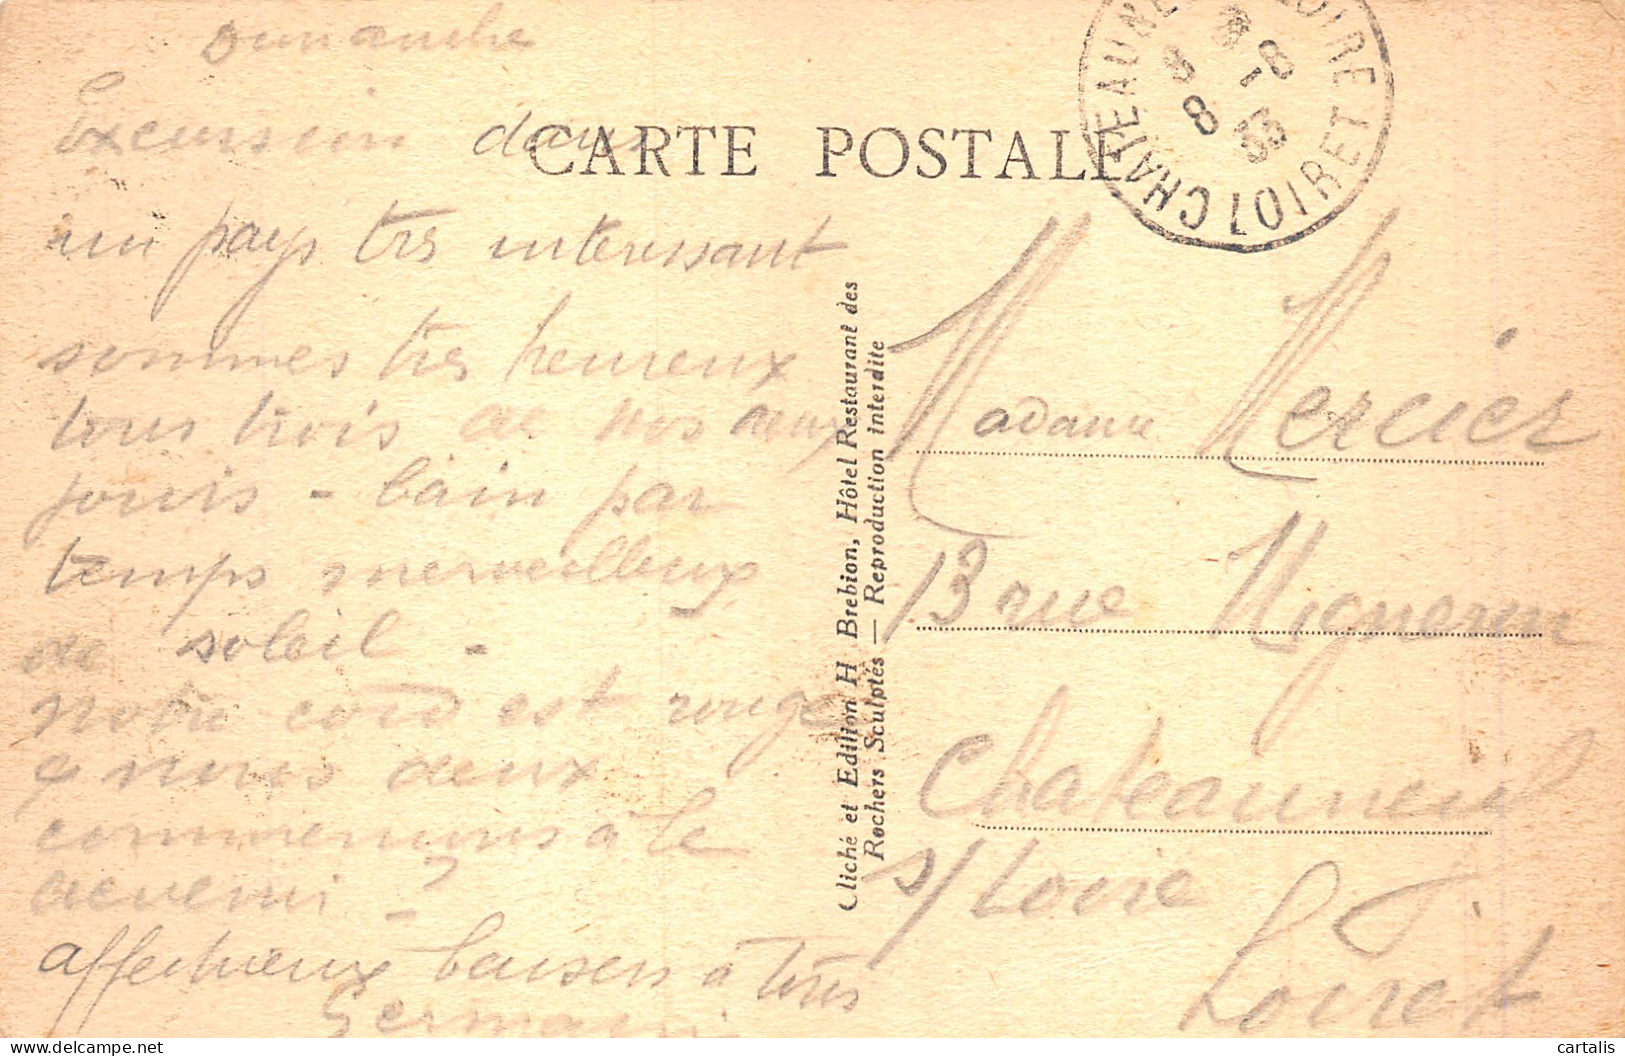 Dimanche
Excursion dans
un pays très interessant
sommes très heureux
tous trois de nos deux
jours - bain par
temps merveilleux
de soleil -
est rouge
& nous deux
commençons à le
devenir -
affectueux baisers à tous
Germain
CARTE POSTALE
CHATEAUNEUF LOIRE
LOIRET
8 - 8
33
Cliché et Edition H Brebion, Hôtel Restaurant des
Rochers Sculptés — Reproduction interdite
Madame Mercier
13 rue Migneron
Chateauneuf
s/ Loire
Loiret
cartalis
delcampe.net